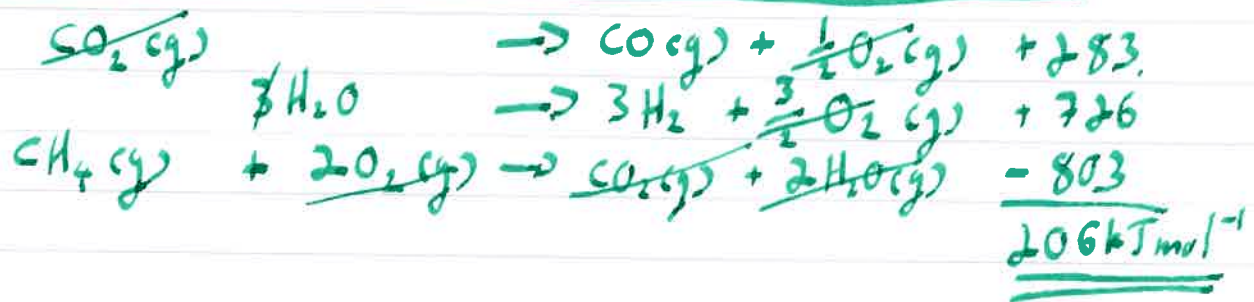 CO₂(g) → CO(g) + ½O₂(g) + 283.
3H₂O → 3H₂ + 3/2 O₂(g) + 726
CH₄(g) + 2O₂(g) → CO₂(g) + 2H₂O(g) - 803
206 kJ mol⁻¹